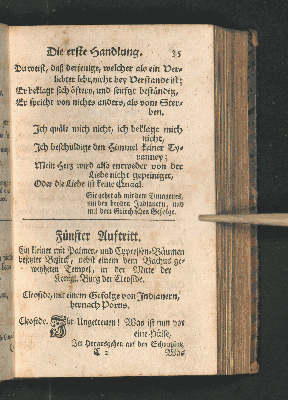 Die erste Handlung. 35
Du weist, daß derjenige, welcher als ein Ver-
liebter lebt, nicht bey Verstande ist;
Er beklagt sich öfters, und seufzt beständig,
Er spricht von nichts anders, als vom Ster-
ben.
Ich quäle mich nicht, ich beklage mich
nicht,
Ich beschuldige den Himmel keiner Ty-
ranney;
Mein Herz wird also entweder von der
Liebe nicht gepeiniget,
Oder die Liebe ist keine Quaal.
Sie gehet ab mit dem Timagenes,
mit den beyden Indianern, und
mit dem Griechischen Gefolge.
Fünfter Auftritt.
Ein kleiner mit Palmen- und Cypressen-Bäumen
besetzter Bezirk, nebst einem dem Bachus ge-
weyheten Tempel, in der Mitte der
Königl. Burg der Cleofide.
Cleofide, mit einem Gefolge von Indianern,
hernach Porus.
Cleofide. Ihr Ungetreuen! Was ist nun vor
eine Hülfe,
Im Herausgehen auf den Schauplatz.
C 2 Was